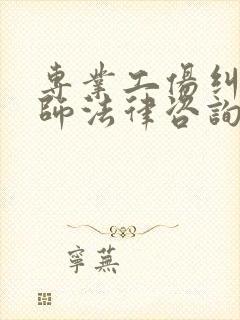 專業工傷糾
師法律咨詢
寧蕪